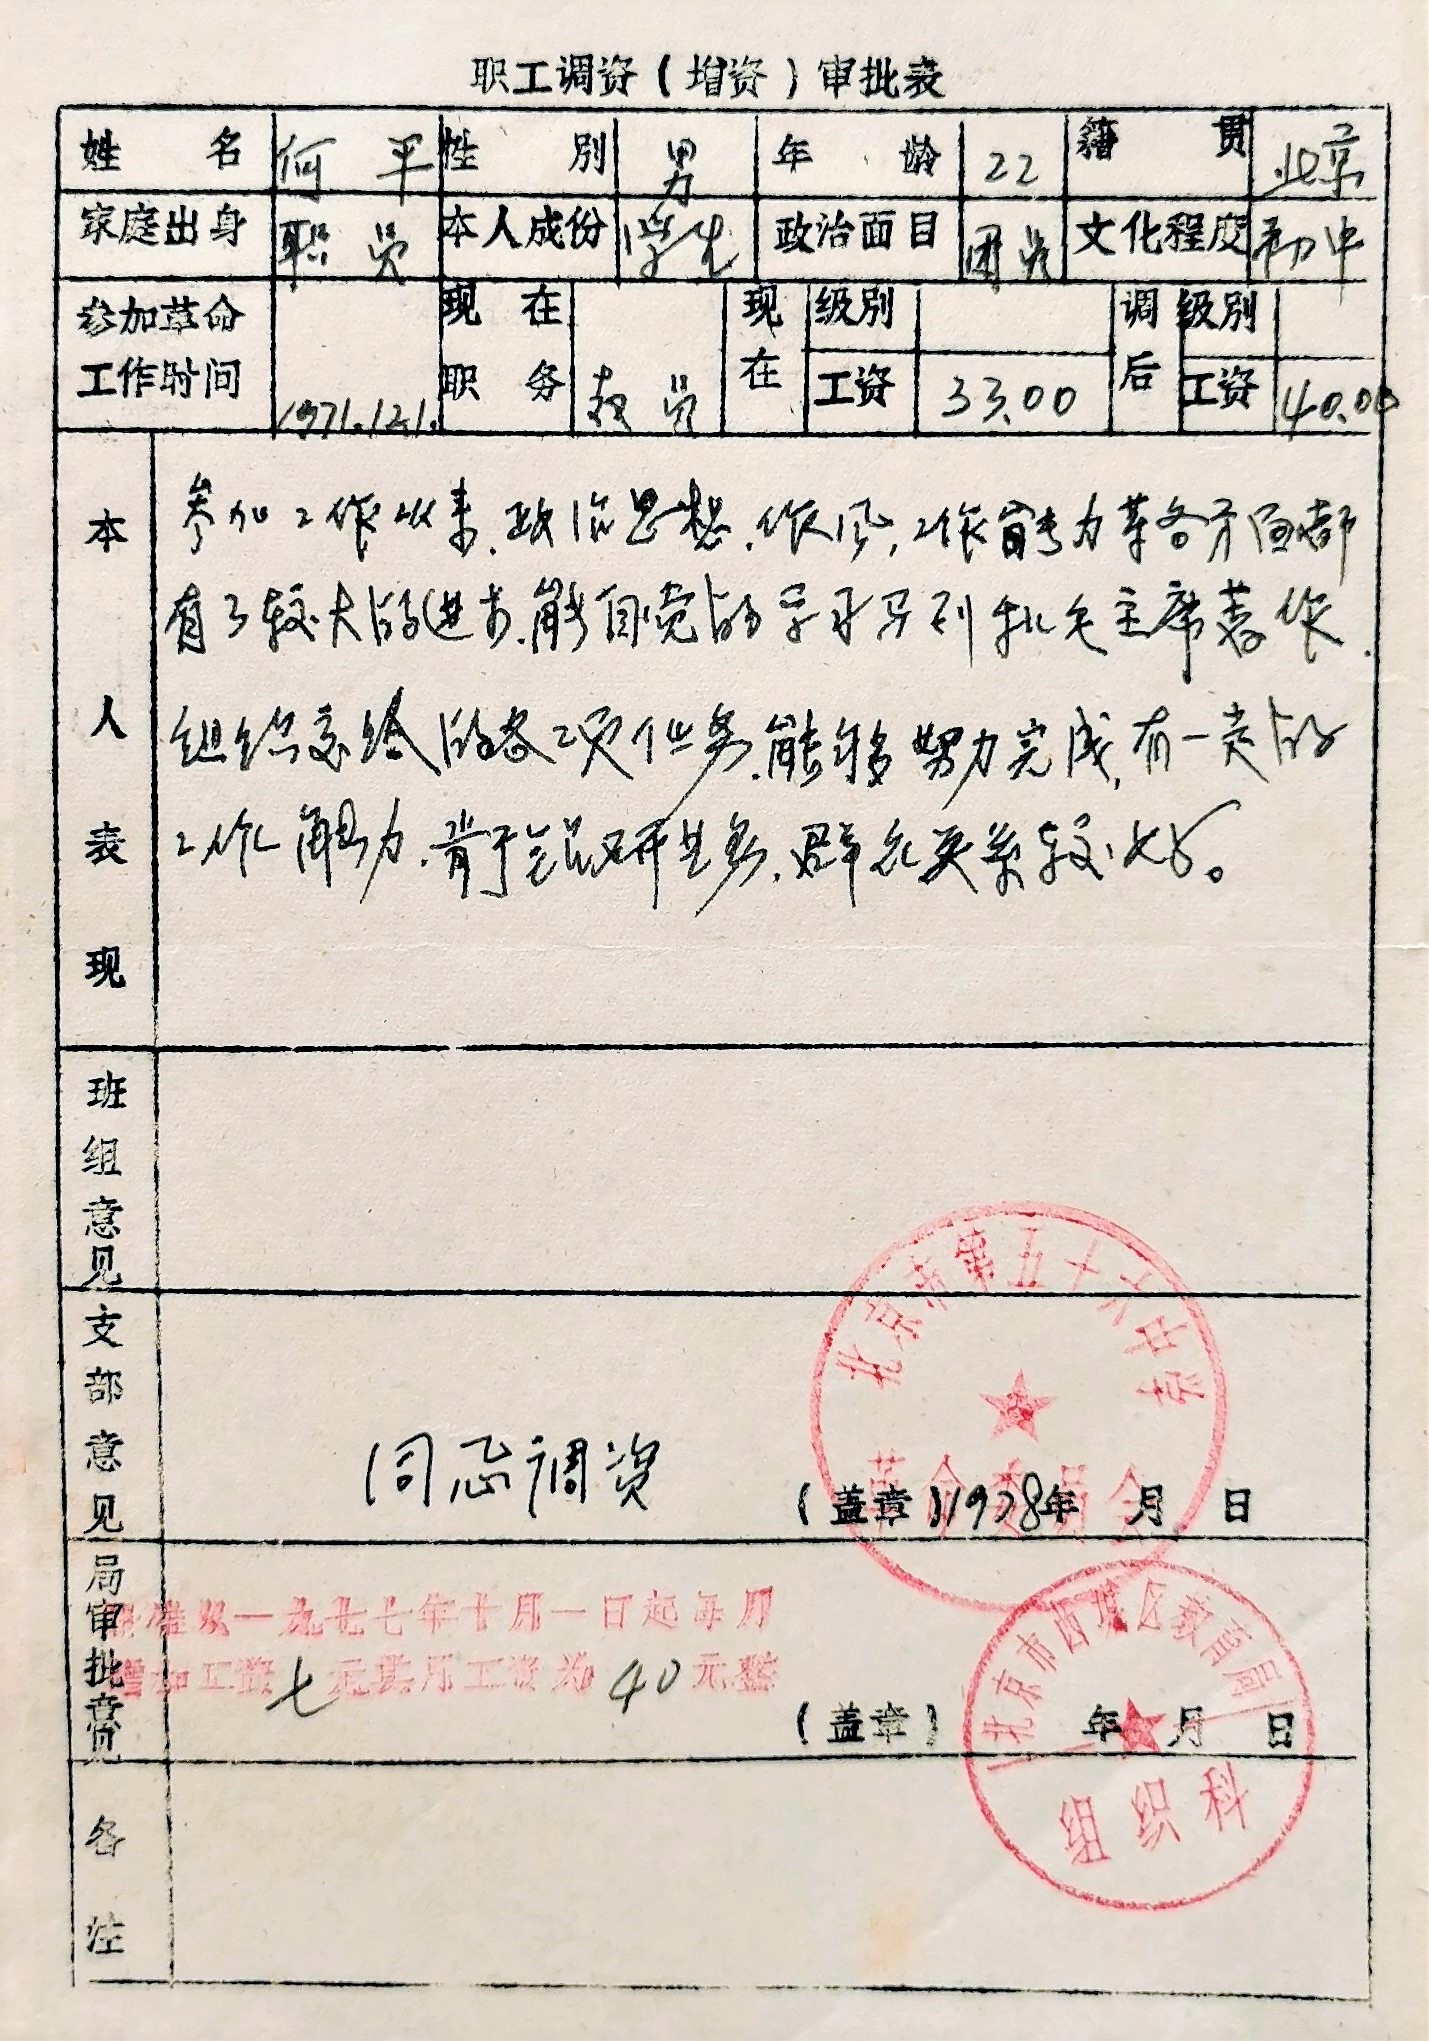 职工调资（增资）审批表
姓名 何平 性别 男 年龄 22 籍贯 北京
家庭出身 职员 本人成份 学生 政治面目 团员 文化程度 初中
参加革命工作时间 1971.12.1. 现在职务 教员 现在 级别 工资 33.00 调后 级别 工资 40.00
本人表现
参加工作以来，政治思想、作风、工作能力等各方面都
有了较大的进步，能自觉的学习马列和毛主席著作，
组织交给的各项任务，能够努力完成，有一定的
工作能力，肯于钻研业务，群众关系较好。
班组意见
支部意见
同意调资
（盖章）1978年 月 日
北京市第五十六中学
革命委员会
局审批意见
批准从一九七七年十月一日起每月
增加工资七元其月工资为40元整
（盖章） 年 月 日
北京市西城区教育局
组织科
备注